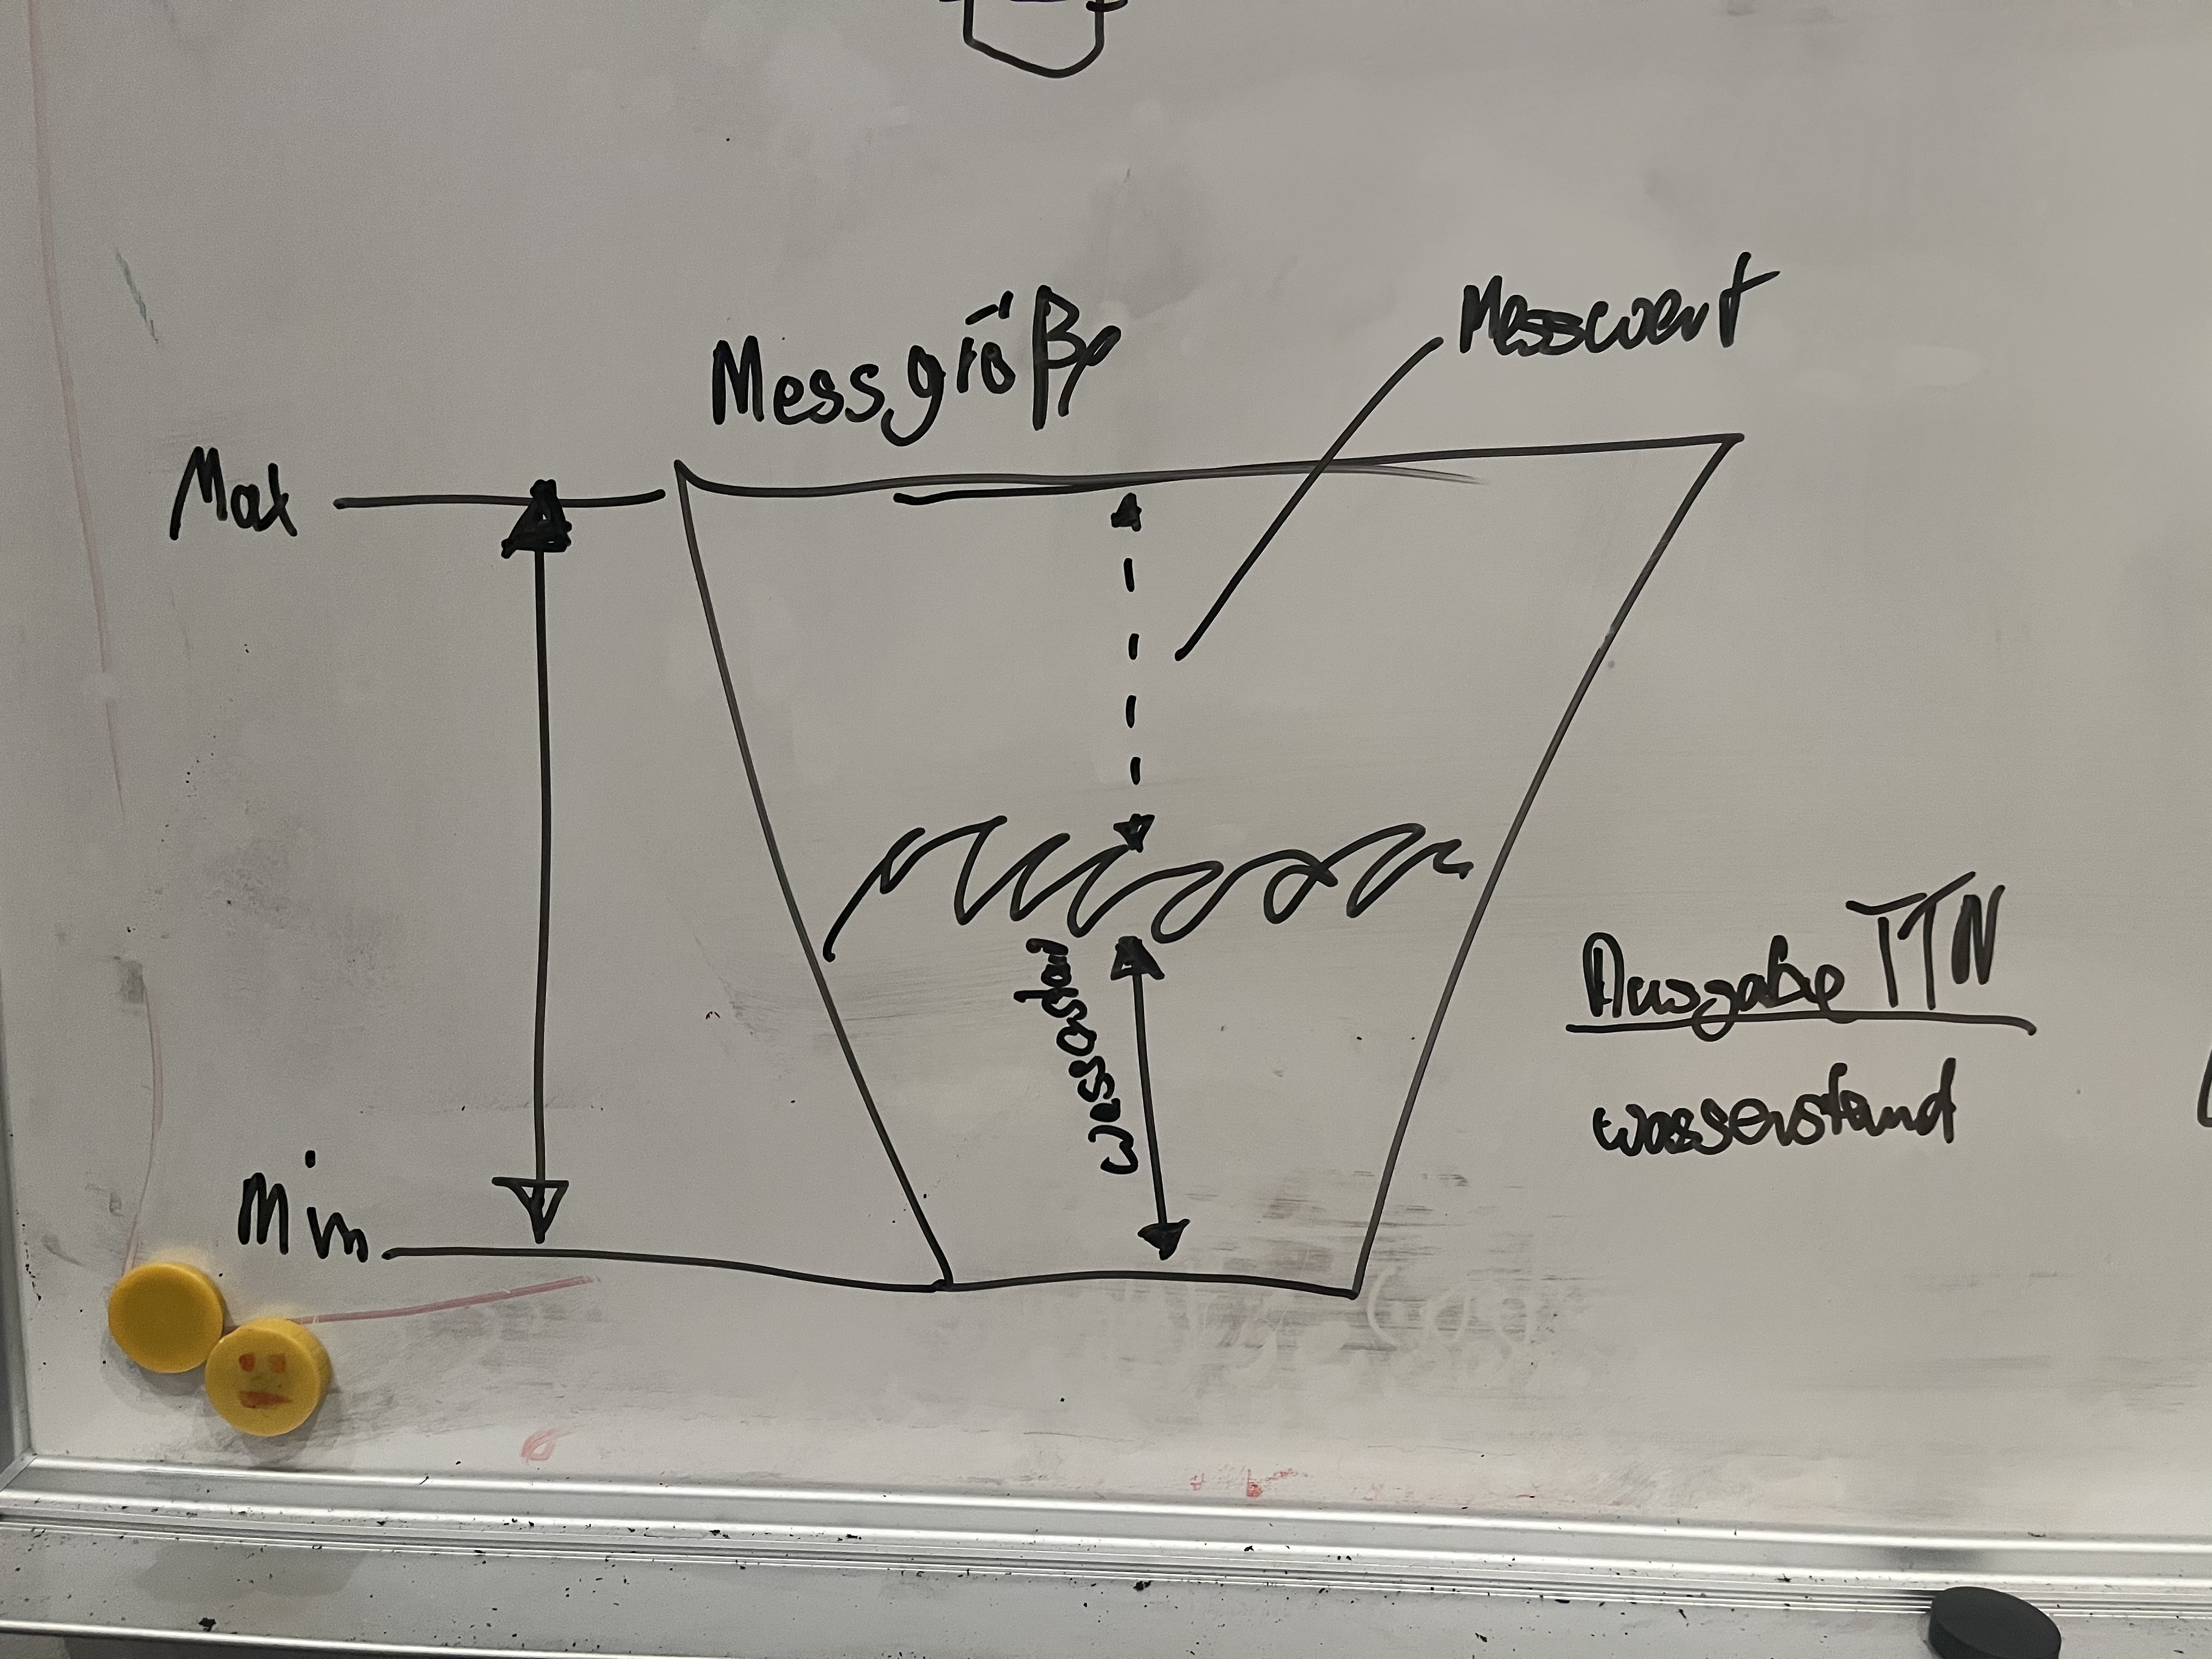 Messgröße
Messwert
Max
Wasserstand
Ausgabe TTN
Wasserstand
Min